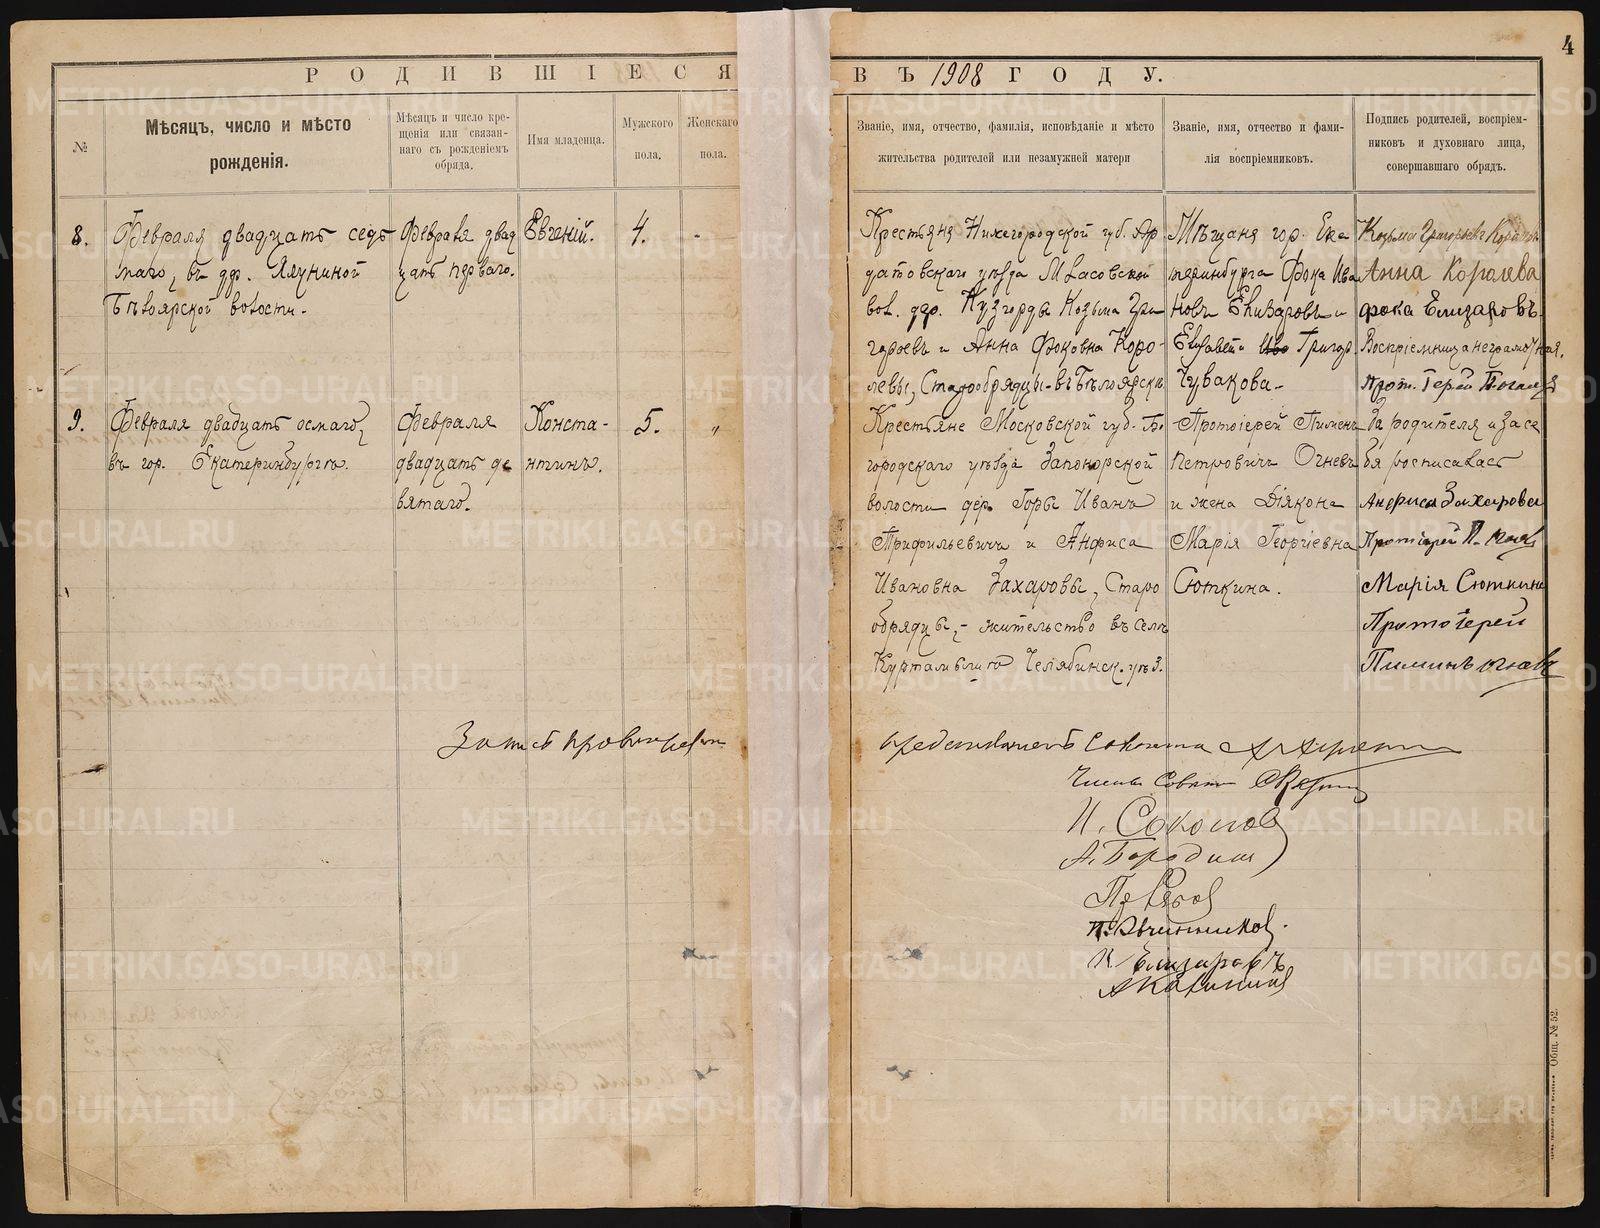 4
РОДИВШІЕСЯ ВЪ 1908 ГОДУ.
№
Мѣсяцъ, число и мѣсто
рожденія.
Мѣсяцъ и число кре-
щенія или связан-
наго съ рожденіемъ
обряда.
Имя младенца.
Мужского
пола.
Женскаго
пола.
Званіе, имя, отчество, фамилія, исповѣданіе и мѣсто
жительства родителей или незамужней матери
Званіе, имя, отчество и фами-
лія воспріемниковъ.
Подпись родителей, воспріем-
никовъ и духовнаго лица,
совершавшаго обрядъ.
8.
Февраля двадцать седь
маго, въ дер.
Бѣлоярской волости.
Февраля двад
цать перваго.
Евгеній.
4.
-
Крестьяне Нижегородской губ. Ар
датовскаго уѣзда
вол. дер. Кузгорды Козьма Гри
горьевъ и Анна Фоковна Коро-
левы, Старообрядцы - въ Бѣлоярскѣ
Мѣщане гор. Ека
теринбурга Фока Ива
новъ Елизаровъ и
Елизавета Григор.
Чувакова.
Козьма Григорьевъ
Анна Королева
фока Елизаровъ
Воспріемница неграмотная.
Прот.
9.
Февраля двадцать осмаго,
въ гор. Екатеринбургѣ.
Февраля
двадцать де
вятаго.
Конста-
нтинъ.
5.
"
Крестьяне Московской губ. Бо
городскаго уѣзда Запонорской
волости дер. Горы Иванъ
Трифильевичъ и Анфиса
Ивановна Захаровы, Старо
обрядцы, - жительство въ Селѣ
Куртамышѣ Челябинск. уѣз.
Протоіерей Пименъ
Петровичъ Огневъ
и жена Діякона
Марія Георгіевна
Сюткина.
За родителя и за се
бя росписалась
Анфиса Захарова
Протоіерей П.
Марія Сюткина
Протоіерей
Пиминъ Огневъ
Запись провѣряли
Предсѣдатель Совѣта
Члены Совѣта
И. Соколов
А. Бородин
П. Овчинников.
К Елизаровъ
А Калинин
Общ. № 52.
METRIKI.GASO-URAL.RU